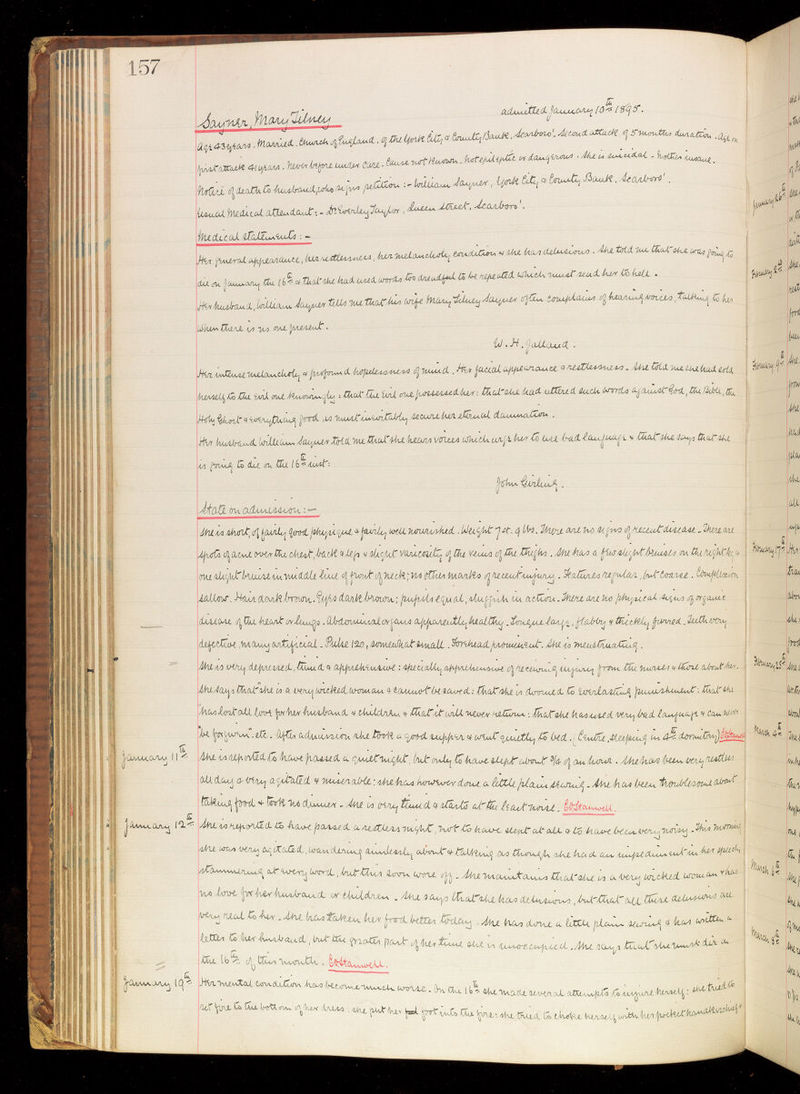 157
admitted January 10th 1895.
Sayner, Mary Tilney
Age 43 years. Married. Church of England. of the York City & County Bank, Scarboro'. Second attack of 5 months duration. Age on
first attack 41 years. Never before under care. Cause not known. Not epileptic or dangerous. She is suicidal. Mother insane.
Notice of death to husband, who signs petition :- William Sayner, York City & County Bank, Scarboro'.
Usual Medical attendant :- Dr Everley Taylor, Queen Street, Scarboro'.
Medical statements :-
Her general appearance, her restlessness, her melancholy condition & she has delusions. She told me that she was going to
die on January the 16th & that she had used words too dreadful to be repeated which must send her to hell.
Her husband, William Sayner tells me that his wife Mary Tilney Sayner often complains of hearing voices, talking to her
when there is no one present.
W. H. Jalland.
Her intense melancholy & profound hopelessness of mind. Her facial appearance & restlessness. She told me she had sold
herself to the evil one knowingly : that the evil one possessed her : that she had uttered such words against God, the Bible, the
Holy Ghost & everything good, as must inevitably secure her eternal damnation.
Her husband William Sayner told me that she hears voices which urge her to use bad language & that she says that she
is going to die on the 16th inst:
John Girling.
State on admission :-
She is short, of fairly good physique & fairly well nourished. Weight 7 st. 9 lbs. There are no signs of recent disease. There are
spots of acne over the chest, back & legs & slight varicosity of the veins of the thighs. She has a few slight bruises on the right leg &
one slight bruise in middle line of front of neck; no other marks of recent injury. Features regular, but coarse. Complexion
sallow. Hair dark brown. Eyes dark brown; pupils equal, sluggish in action. There are no physical signs of organic
disease of the heart or lungs. Abdominal organs apparently healthy. Tongue large, flabby & thickly furred. Teeth very
defective, many artificial. Pulse 120, somewhat small. Forehead prominent. She is menstruating.
She is very depressed, timid & apprehensive : specially apprehensive of receiving injury from the nurses & those about her.
She says that she is a very wicked woman & cannot be saved : that she is doomed to everlasting punishment : that she
has lost all love for her husband & children & that it will never return : that she has used very bad language & can never
be forgiven. etc. After admission she took a good supper & went quietly to bed. (Centre, sleeping in 4th dormitory)
January 11th She is reported to have passed a quiet night, but only to have slept about ¾ of an hour. She has been very restless
all day & very agitated & miserable : she has however done a little plain sewing. She has been troublesome about
taking food & took no dinner. She is very timid & starts at the least noise. CStanwell.
January 12th She is reported to have passed a restless night, not to have slept at all & to have been very noisy. This morning
she was very agitated, wandering aimlessly about & talking as though she had an impediment in her speech,
stammering at every word, but this soon wore off. She maintains that she is a very wicked woman & has
no love for her husband or children. She says that she has delusions, but that all these delusions are
very real to her. She has taken her food better today. She has done a little plain sewing & has written a
letter to her husband, but the greater part of her time she is unoccupied. She says that she must die on
the 16th of this month. CStanwell.
January 19th Her mental condition has become much worse. On the 16th she made several attempts to injure herself : she tried to
set fire to the bottom of her dress : she put her foot into the fire : she tried to choke herself with her pocket handkerchief &
January 26th
February 2nd
February 9th
February 17th
February 25th
March 4th
March 6th
March 8th